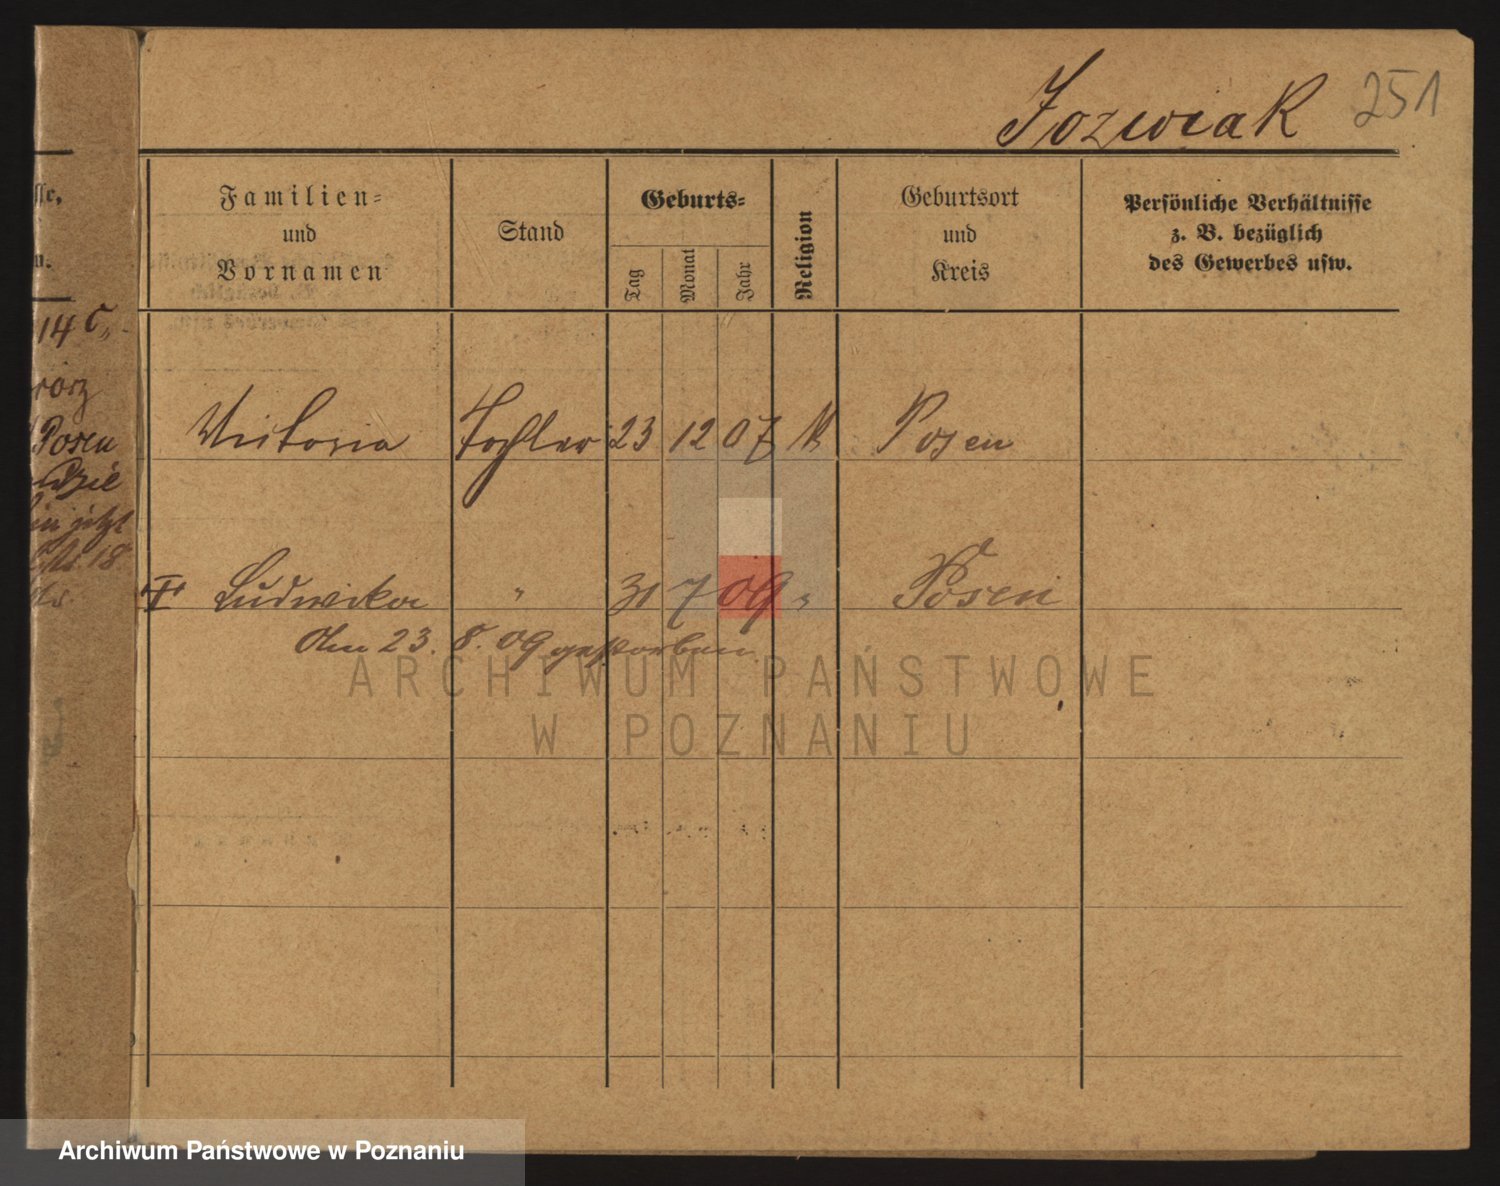 Jozwiak 251
Familien= und Vornamen
Stand
Geburts=
Tag Monat Jahr
Religion
Geburtsort und Kreis
Persönliche Verhältnisse
z. B. bezüglich
des Gewerbes usw.
14
Posen
jetzt
18
Viktoria Tochter 23 12 07 K Posen
Ludwika " 31 7 09 " Posen
Am 23. 8. 09 gestorben
ARCHIWUM PAŃSTWOWE
W POZNANIU
Archiwum Państwowe w Poznaniu